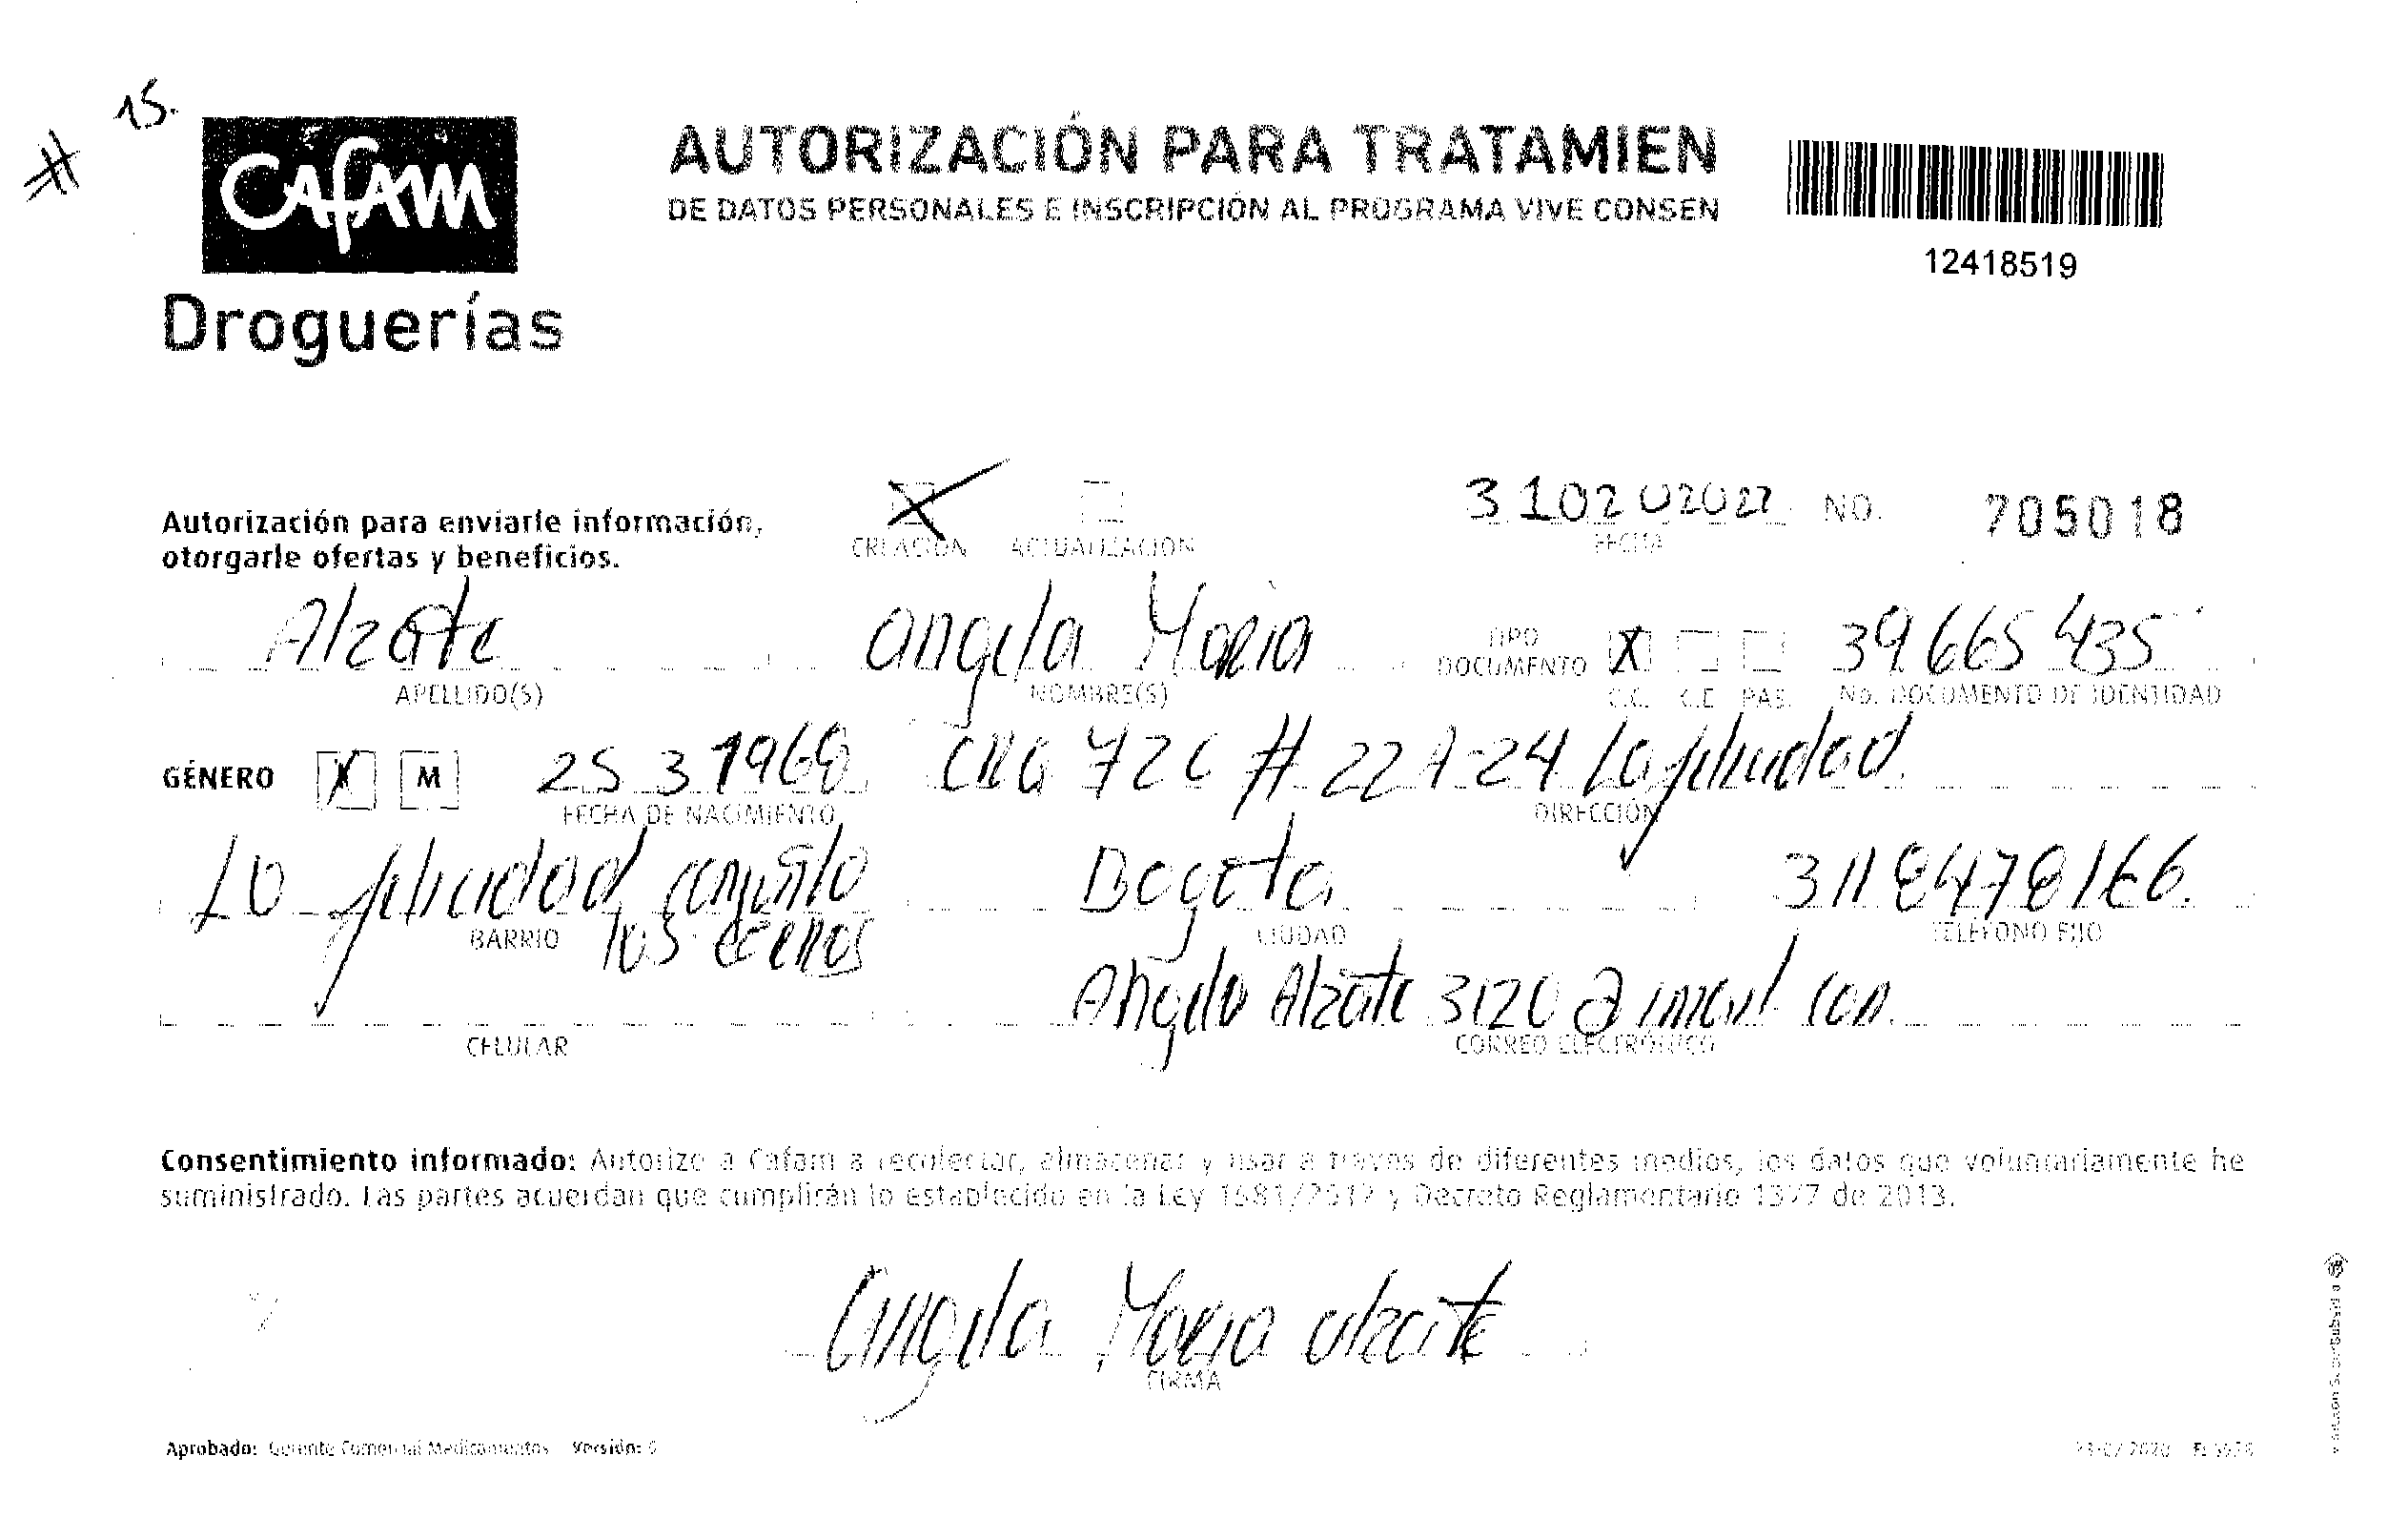 # 15.
Cafam
Droguerías
AUTORIZACIÓN PARA TRATAMIEN
DE DATOS PERSONALES E INSCRIPCIÓN AL PROGRAMA VIVE CONSEN
12418519
Autorización para enviarle información,
otorgarle ofertas y beneficios.
X
CREACIÓN ACTUALIZACIÓN
FECHA
NO. 705018
Alzate
APELLIDO(S)
Angela Maria
NOMBRE(S)
TIPO
DOCUMENTO
X
C.C. C.E PAS.
39665435
No. DOCUMENTO DE IDENTIDAD
GÉNERO X M
25 3 1968
FECHA DE NACIMIENTO
CRA 72C # 22A-24 La felicidad
DIRECCIÓN
La felicidad conjunto
BARRIO
los
Bogota
CIUDAD
3118478166.
TELÉFONO FIJO
CELULAR
Angela Alzate 3120 @
CORREO ELECTRÓNICO
Consentimiento informado: Autorizo a Cafam a recolectar, almacenar y usar a través de diferentes medios, los datos que voluntariamente he
suministrado. Las partes acuerdan que cumplirán lo establecido en la Ley 1581/2012 y Decreto Reglamentario 1377 de 2013.
Angela Maria alzate
FIRMA
Aprobado: Gerente Comercial Medicamentos Versión: 6